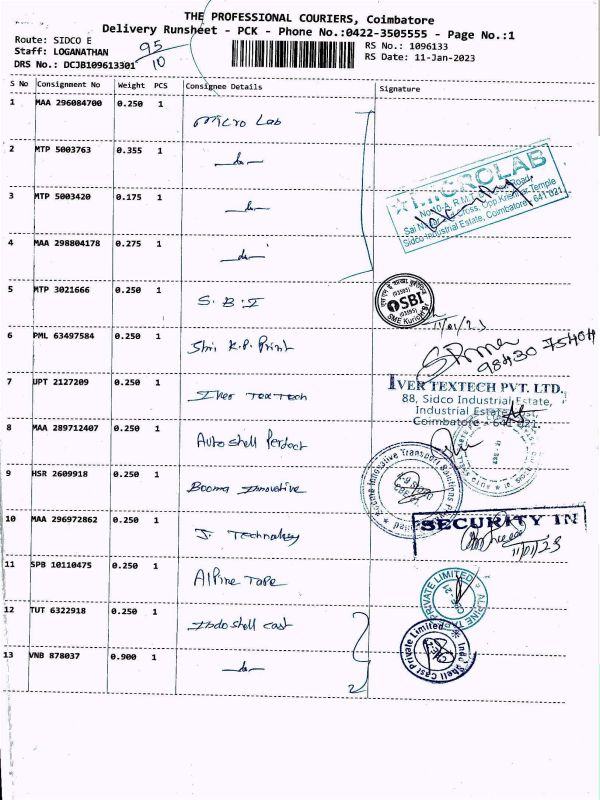 THE PROFESSIONAL COURIERS, Coimbatore
Delivery Runsheet - PCK - Phone No.:0422-3505555 - Page No.:1
Route: SIDCO E
Staff: LOGANATHAN
DRS No.: DCJB109613301
95/10
RS No.: 1096133
RS Date: 11-Jan-2023
S No Consignment No Weight PCS Consignee Details Signature
1 MAA 296084700 0.250 1 Micro Lab
2 MTP 5003763 0.355 1 —do—
3 MTP 5003420 0.175 1 —do—
4 MAA 298804178 0.275 1 —do—
MICROLAB
Sidco Industrial Estate, Coimbatore - 641 021
5 MTP 3021666 0.250 1 S. B. I
SBI
(03595)
SME Kurichi
11/01/23
6 PML 63497584 0.250 1 Shri K.P. Print
98430 75404
7 UPT 2127209 0.250 1 Iver Tex Tech
IVER TEXTECH PVT. LTD.
88, Sidco Industrial Estate,
Industrial Estate Post,
Coimbatore - 641 021.
8 MAA 289712407 0.250 1 Auto shell Perfect
9 HSR 2609918 0.250 1 Booma Innovative
Booma Innovative Transport Solutions
10 MAA 296972862 0.250 1 J. Technology
SECURITY IN
11/01/23
11 SPB 10110475 0.250 1 Alpine Tape
PRIVATE LIMITED
12 TUT 6322918 0.250 1 Indo shell cast
Indo Shell Cast Private Limited
13 VNB 878037 0.900 1 —do—
2